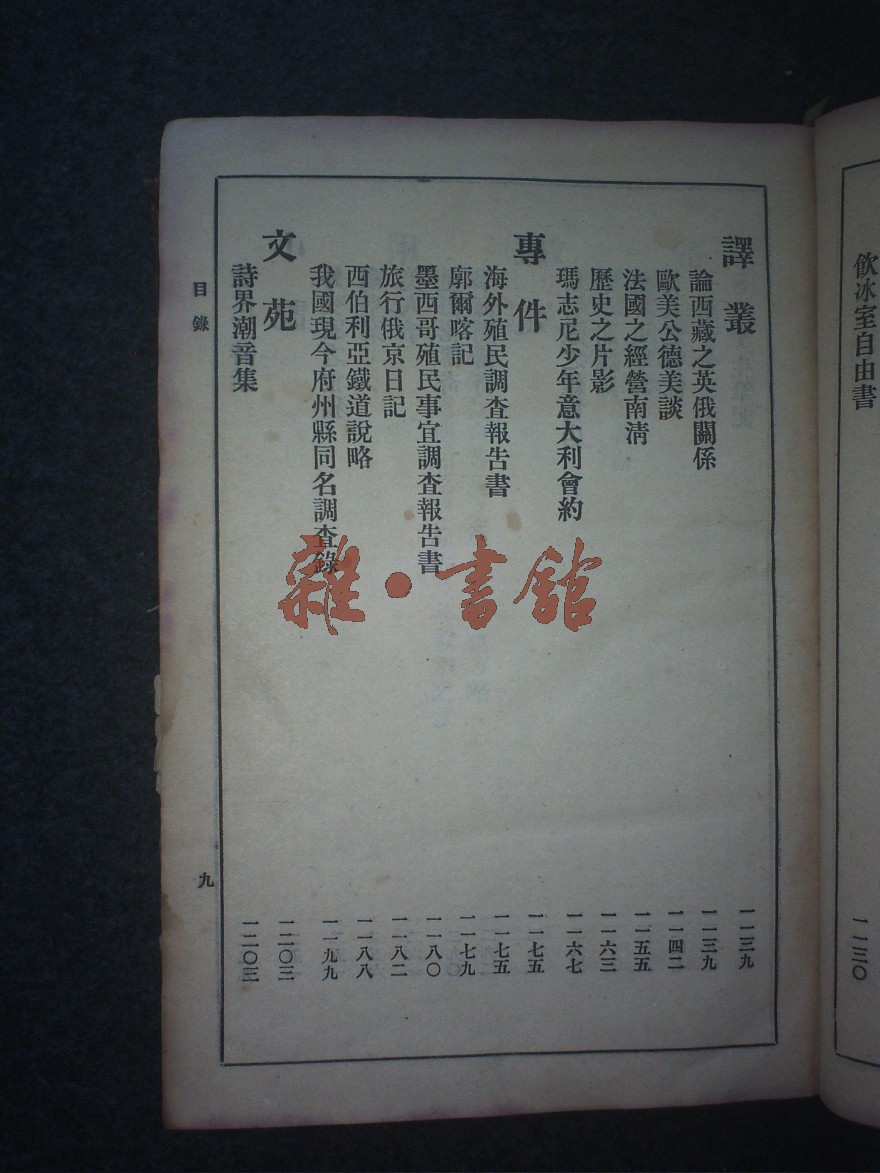 飲冰室自由書 一一三〇
譯叢 一一三九
論西藏之英俄關係 一一三九
歐美公德美談 一一四二
法國之經營南淸 一一五五
歷史之片影 一一六三
瑪志尼少年意大利會約 一一六七
專件 一一七五
海外殖民調查報告書 一一七五
廓爾喀記 一一七九
墨西哥殖民事宜調查報告書 一一八〇
旅行俄京日記 一一八二
西伯利亞鐵道說略 一一八八
我國現今府州縣同名調查錄 一一九九
文苑 一二〇三
詩界潮音集 一二〇三
目錄
九
雜·書館